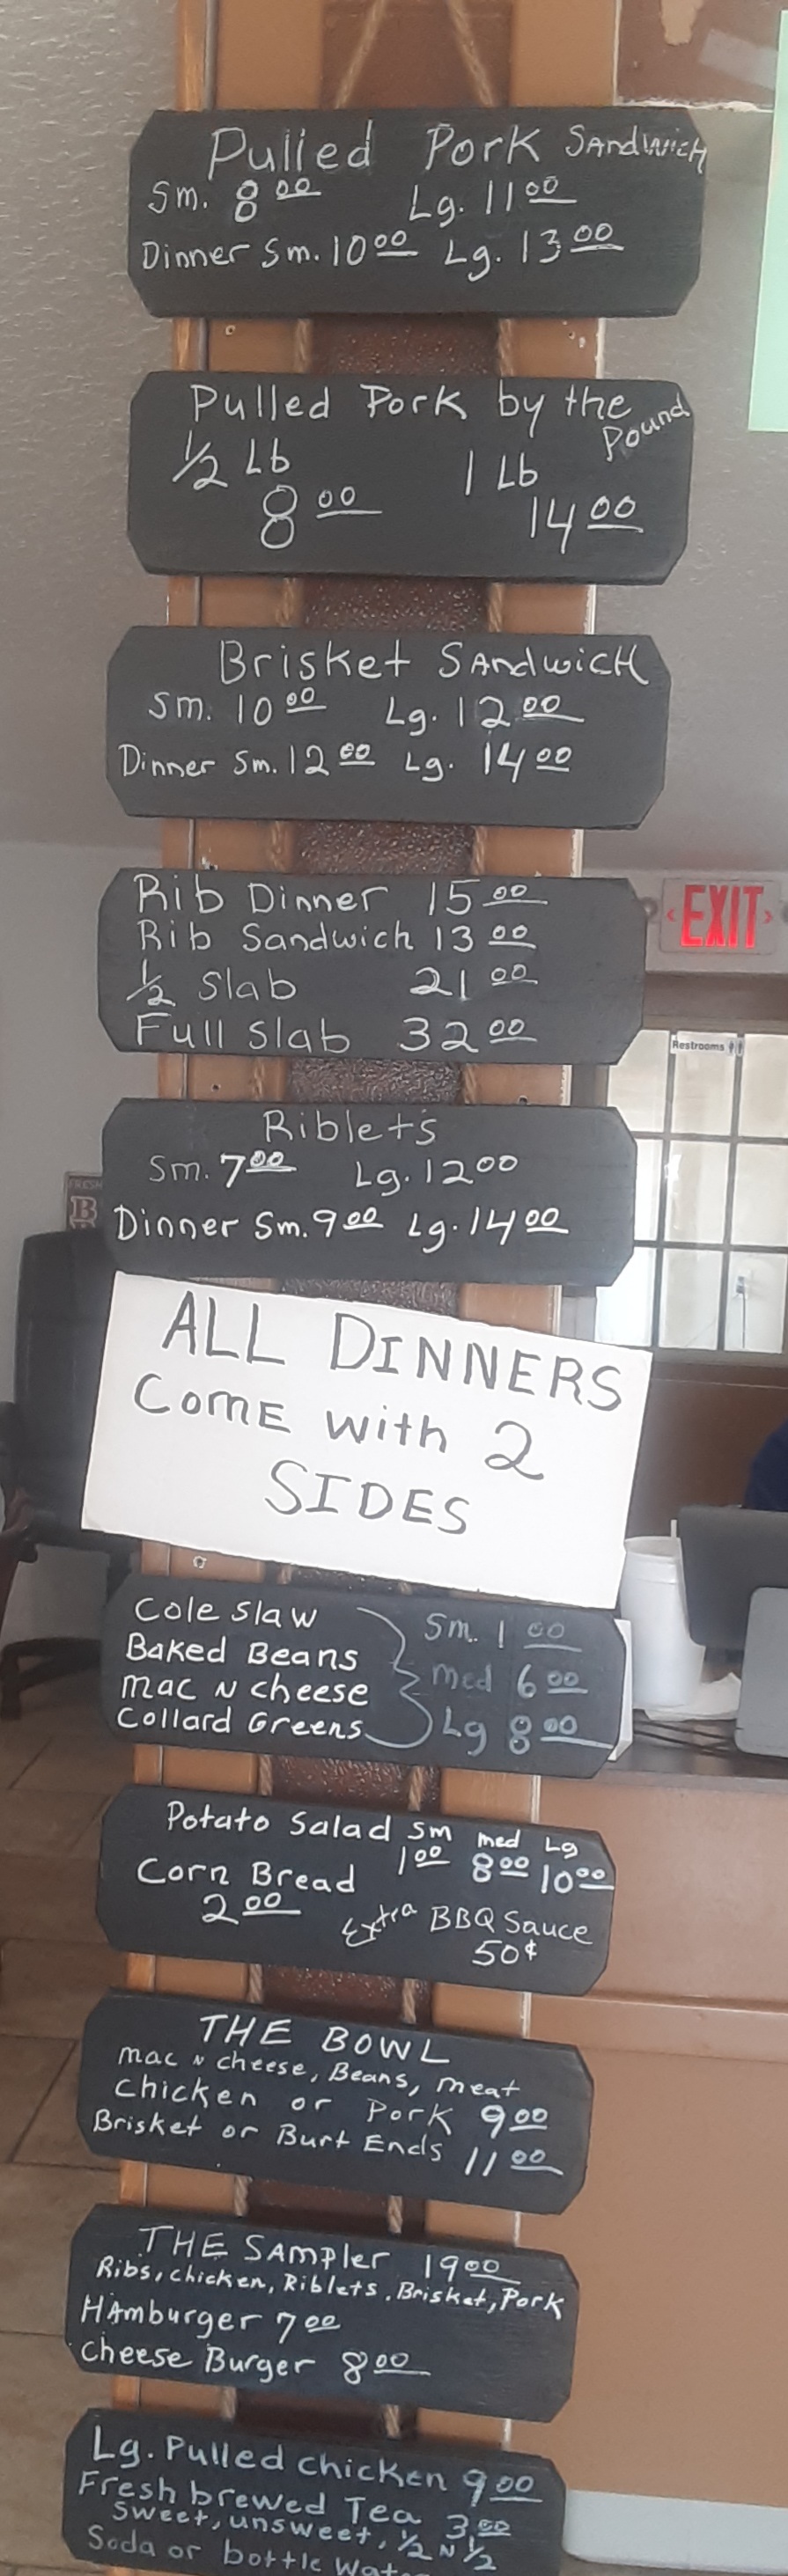 Pulled Pork SANdWicH
Sm. 8 00 Lg. 11 00
Dinner Sm. 10 00 Lg. 13 00
Pulled Pork by the Pound
1/2 Lb 1 Lb
8 00 14 00
Brisket SANdwicH
Sm. 10 00 Lg. 12 00
Dinner Sm. 12 00 Lg. 14 00
Rib Dinner 15 00
Rib Sandwich 13 00
1/2 Slab 21 00
Full Slab 32 00
EXIT
Restrooms
Riblets
Sm. 7 00 Lg. 12 00
Dinner Sm. 9 00 Lg. 14 00
FRESH
B
ALL DINNERS
COME with 2
SIDES
Cole Slaw Sm. 1 00
Baked Beans
mac N cheese med 6 00
Collard Greens Lg 8 00
Potato Salad Sm med Lg
1 00 8 00 10 00
Corn Bread
2 00 Extra BBQ Sauce
50¢
THE BOWL
mac N cheese, Beans, meat
Chicken or Pork 9 00
Brisket or Burt Ends 11 00
THE SAmpler 19 00
Ribs, chicken, Riblets, Brisket, Pork
HAmburger 7 00
cheese Burger 8 00
Lg. Pulled chicken 9 00
Fresh brewed Tea 3.00
Sweet, unsweet, 1/2 N 1/2
Soda or bottle